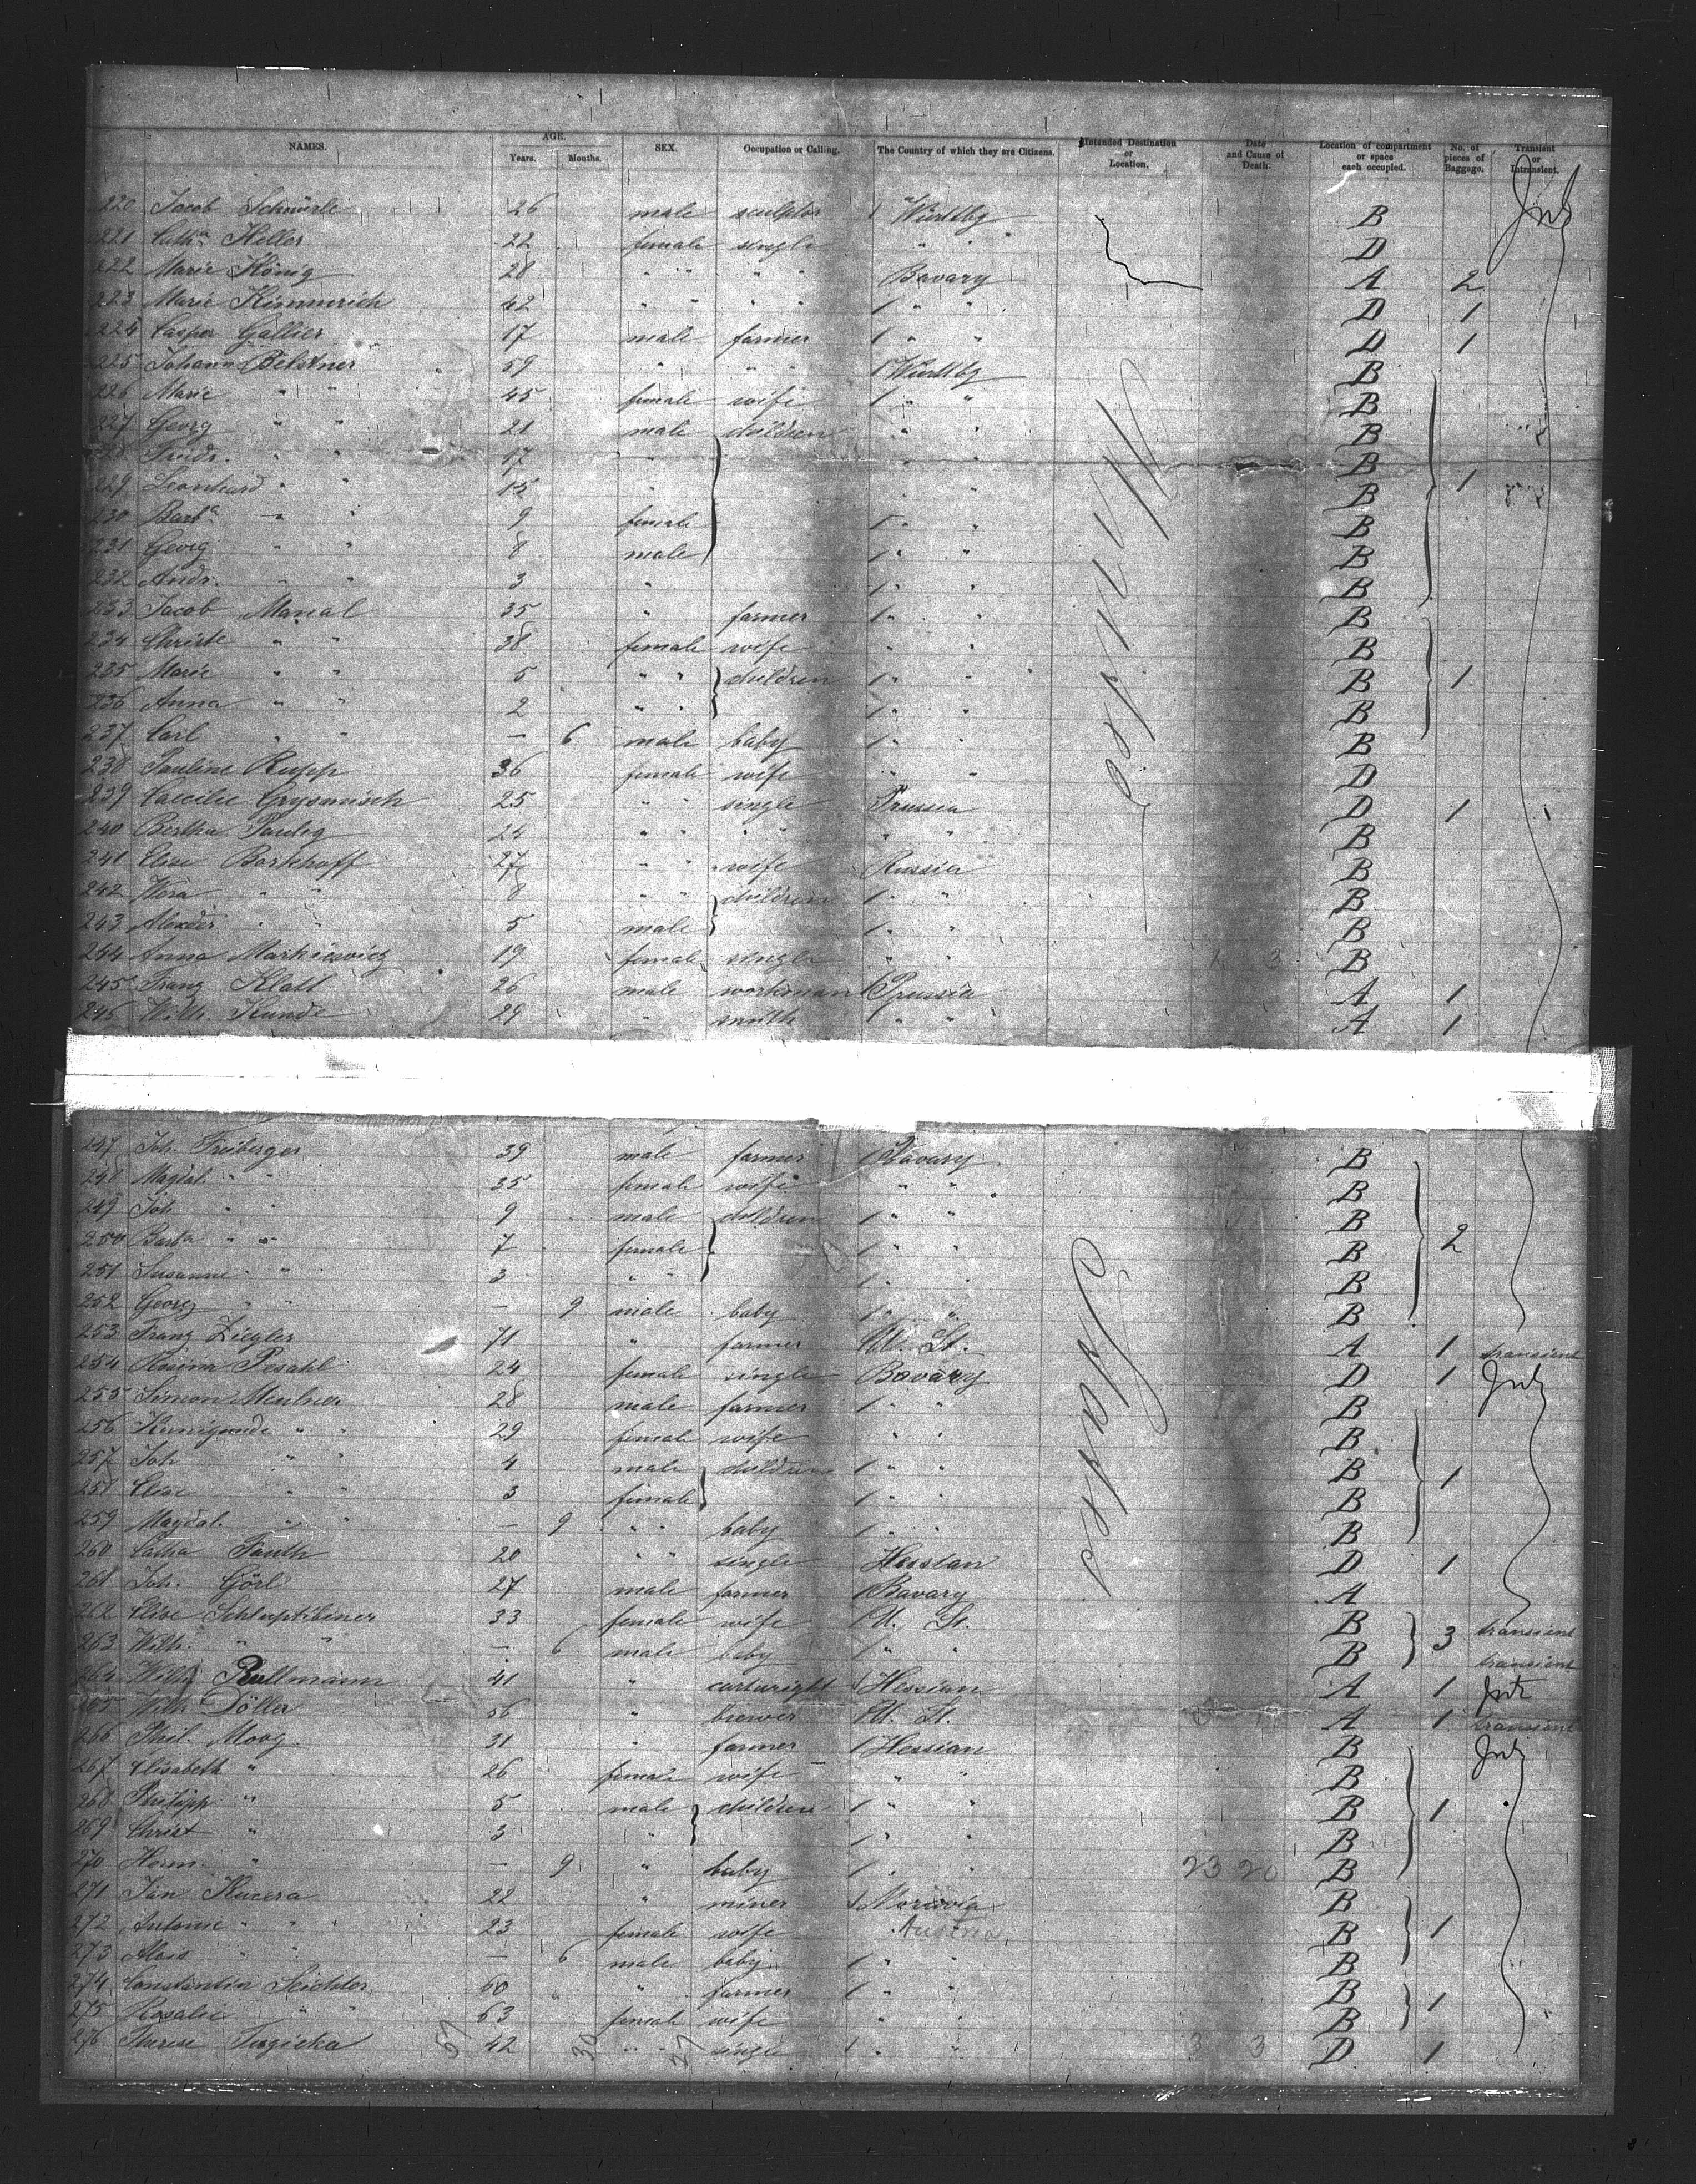 NAMES. AGE. Years. Months. SEX. Occupation or Calling. The Country of which they are Citizens. Intended Destination or Location. Date and Cause of Death. Location of compartment or space each occupied. No. of pieces of Baggage. Transient or Intransient.
220 Jacob 26 male sculptor 1 Württbg B
221 Cath.a Heller 22 female single " " D
222 Marie König 28 " " " " Bavary A 2
223 Marie Himmerich 42 " " " " 1 " " D 1
224 Casper Gallier 17 male farmer 1 " " D 1
225 Johann Belstner 59 " " " 1 Württbg B
226 Marie " " 45 female wife 1 " " B
227 Georg " " 21 male children " " B
228 Fredr. " " 17 " " " B
229 Leonhard " " 15 " " " B 1
230 Barb.a " " 9 female 1 " " B
231 Georg " " 8 male 1 " " B
232 Andr. " " 3 " 1 " " B
233 Jacob Manal 35 " farmer 1 " " B
234 Christe " " 38 female wife " " B
235 Marie " " 5 " " children 1 " " B 1
236 Anna " " 2 " " 1 " " B
237 Carl " " — 6 male baby 1 " " B
238 Pauline Rupp 36 female wife " " D
239 Caecilie 25 " " single Prussia D 1
240 Bertha Paulig 24 " " " " " " B
241 Elise Barkhoff 27 " " wife Russia B
242 Wera " " 8 " " children 1 " " B
243 Alexder " " 5 male 1 " " B
244 Anna Markiewicz 19 female single " " B
245 Franz Klatt 26 male workman 1 Prussia A 1
246 Wilh. Kunde 29 " smith 1 " " A 1
247 Joh. Freiberger 39 male farmer 1 Bavary B
248 Magdal. " " 35 female wife " " B
249 Joh " " 9 male children 1 " " B
250 Barba " " 7 female 1 " " B 2
251 Susanne " " 3 " " 1 " " B
252 Georg " " — 9 male baby 1 " " B
253 Franz Ziegler 71 " farmer U. St. A 1 transient
254 Rosina Pesahl 24 female single Bavary D 1
255 Simon 28 male farmer 1 " " B
256 Kunigunde " " 29 female wife " " B
257 Joh " " 4 male children 1 " " B 1
258 Elise " " 3 female 1 " " B
259 Magdal. " " — 9 " " baby 1 " " B
260 Catha Fauth 20 " " single Hessian D 1
261 Joh. Görl 27 male farmer 1 Bavary A
262 Elise 33 female wife 1 U. St. B 3 transient
263 Wilh. " " — 6 male baby 1 " B transient
264 Wilh. Rullmann 41 " cartwright 1 Hessian A 1
265 Wilh Döller 56 " brewer 1 U. St. A 1 transient
266 Phil. Moog 31 " farmer 1 Hessian B
267 Elisabeth " 26 female wife " " B
268 Philipp " 5 male children 1 " " B 1
269 Christ " 3 " 1 " " B
270 Herm. " — 9 " baby 1 " " 23 20 B
271 Jan Kucera 22 " miner 1 Moravia B
272 Antonie " " 23 female wife Austria B 1
273 Alois " " — 6 male baby 1 " " B
274 Constantin Seichter 60 " " farmer 1 " " B 1
275 Rosalie " " 63 female wife " " B
276 Therese 42 " " single 1 " " 3 3 D 1